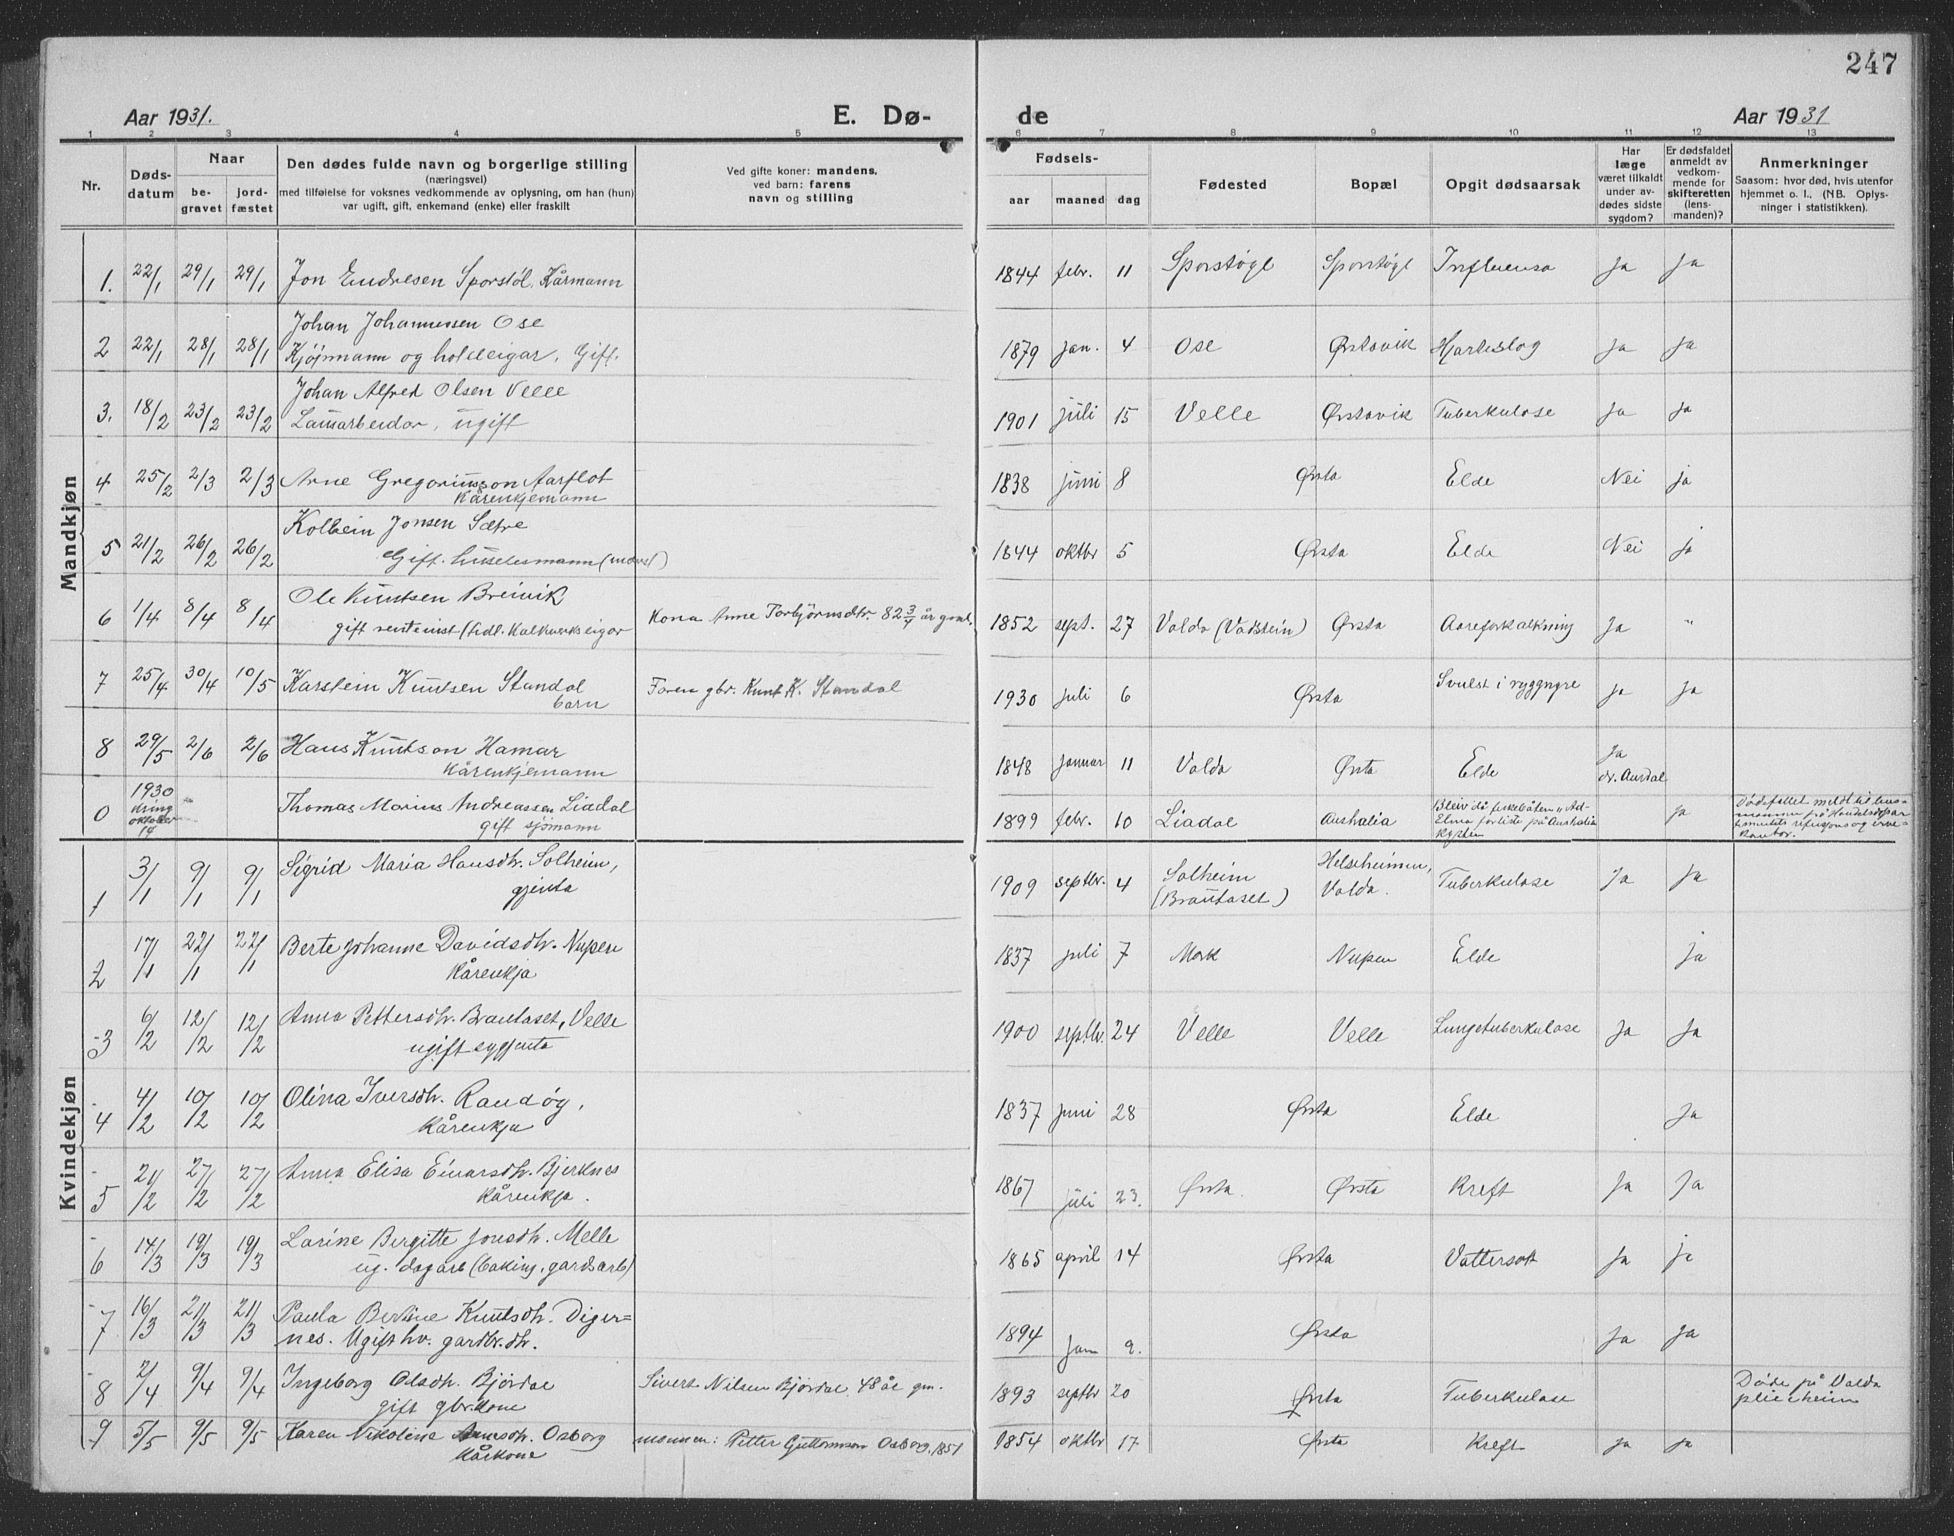 247
Aar 1931. E. Dø- de Aar 1931
1 2 3 4 5 6 7 8 9 10 11 12 13
Nr. Døds-datum Naar be-gravet jord-fæstet Den dødes fulde navn og borgerlige stilling (næringsvei) med tilføielse for voksnes vedkommende av oplysning, om han (hun) var ugift, gift, enkemand (enke) eller fraskilt
Ved gifte koner: mandens, ved barn: farens navn og stilling
Fødsels- aar maaned dag Fødested Bopæl Opgit dødsaarsak
Har læge været tilkaldt under av-dødes sidste sygdom?
Er dødsfaldet anmeldt av vedkom-mende for skifteretten (lens-manden)?
Anmerkninger Saasom: hvor død, hvis utenfor hjemmet o. l., (NB. Oplys-ninger i statistikken).
Mandkjøn
1. 22/1 29/1 29/1 Jon Endresen Sporstøl, Kårmann 1844 febr. 11 Sporstøyl Sporstøyl Influensa Ja Ja
Johan Johannessen Ose
2 22/1 28/1 28/1 og holdeigar, Gift. 1879 jan. 4 Ose Ørstavik Hjarteslag Ja Ja
Johan Alfred Olsen Velle
3. 18/2 23/2 23/2 ugift 1901 juli 15 Velle Ørstavik Tuberkulose Ja Ja
4 25/2 2/3 2/3 Arne Gregoriusson Aarflot 1838 juni 8 Ørsta Elde Nei ja
Kårenkjemann
Kolbein Jonsen Sætre
5 21/2 26/2 26/2 Gift. 1844 oktbr 5 Ørsta Elde Nei ja
Ole Knutsen Breivik
6 1/4 8/4 8/4 gift rentenist (fidl. Kalkverkseigar Kona Anne Torbjørnsdtr. 82 år gml. 1852 sept. 27 Volda (Vadstein) Ørsta Aareforkalkning Ja "
7 25/4 30/4 10/5 Karstein Knutsen Standal Faren gbr. Knut K. Standal 1930 juli 6 Ørsta Svulst i ryggnyre ja Ja
barn
8 29/5 2/6 2/6 Hans Knutson Hamar 1848 januar 11 Volda Ørsta Elde Ja
Kårenkjemann dr. Aurdal
0 1930 kring oktober 14 Thomas Marius Andreassen Liadal 1899 febr. 10 Liadal Australia Bleiv då fiskebåten "Ad-Elina forliste på Australia Kysten ja Dødsfallet meldt til på
gift sjømann
Kvindekjøn
1 3/1 9/1 9/1 Sigrid Maria Hansdtr. Solheim, 1909 septbr. 4 Solheim (Brautaset) Helseheimen, Volda. Tuberkulose Ja Ja
gjenta
2 17/1 22/1 22/1 Berte Johanne Davidsdtr. Nupen 1837 juli 7 Mork Nupen Elde ja
Kårenkja
3 6/2 12/2 12/2 Anna Pettersdtr. Brautaset, Velle 1900 septbr. 24 Velle Velle Lungetuberkulose Ja Ja
ugift sygjenta
4 4/2 10/2 10/2 Olina Iversdtr. Randøy, 1837 juni 28 Ørsta Elde Ja
Kårenkja
5 21/2 27/2 27/2 Anna Elisa Einarsdtr. Bjerknes 1867 juli 23. Ørsta. Ørsta Kreft Ja Ja
Kårenkja.
6 14/3 19/3 19/3 Larine Bergitte Jonsdtr. Melle 1865 april 14 Ørsta Vattersott Ja ja
ug. dagarb (baking, gardsarb)
7 16/3 21/3 21/3 Paula Bertine Knutsdtr. Diger=
nes. Ugift hv. gardbr. dtr. 1894 Jan 9. Ørsta Ja Ja
8 2/4 9/4 9/4 Ingeborg Olsdtr. Bjørdal Sivert Nilsen Bjørdal 48 år gm. 1893 septbr 20 Ørsta Tuberkulose Døde på Volda pleieheim
gift gbrkone
9 5/5 9/5 9/5 Karen Nikoline Osborg mannen: Petter Guttormson Osborg, 1851 1854 oktbr 17. Ørsta Kreft Ja Ja
Kårkone